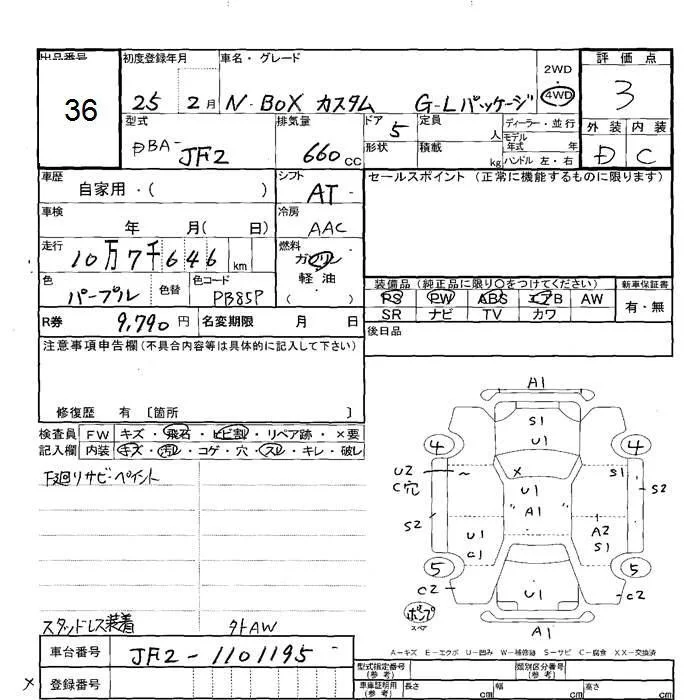 出品番号 初度登録年月 車名・グレード 2WD ・ 4WD 評価点
36 25 2月 N-BOX カスタム G-Lパッケージ 3
型式 排気量 ドア 定員 ディーラー・並行 外装 内装
DBA-JF2 660cc 5 人 モデル年式 年 D C
形状 積載 kg ハンドル 左・右
車歴 シフト セールスポイント(正常に機能するものに限ります)
自家用・( ) AT
車検 冷房
年 月( 日) AAC
走行 燃料
10万7千646km ガソリン
軽油
( )
色 色替 色コード 装備品(純正品に限り○をつけてください) 新車保証書
パープル PB85P PS PW ABS エアB AW 有・無
SR ナビ TV カワ
R券 9,790円 名変期限 月 日 後日品
注意事項申告欄(不具合内容等は具体的に記入して下さい)
修復歴 有 〔箇所 〕
検査員 FW キズ・飛石・ヒビ割・リペア跡・×要
記入欄 内装 キズ・汚れ・コゲ・穴・スレ・キレ・破レ
下廻リサビ・ペイント
A1
S1
U1
4 4
U2 ~ X S1
C穴 U1 S2
A1
S2 U1 A2
C1 S1
5 5
C2 U1 C2
ポンプ
スペア A1
スタッドレス装着 タトAW
A-キズ E-エクボ U-凹み W-補修跡 S-サビ C-腐食 XX-交換済
車台番号 JF2-1101195
型式指定番号(参考) 類別区分番号(参考)
× 登録番号
車庫証明用(参考) 長さ cm 幅 cm 高さ cm